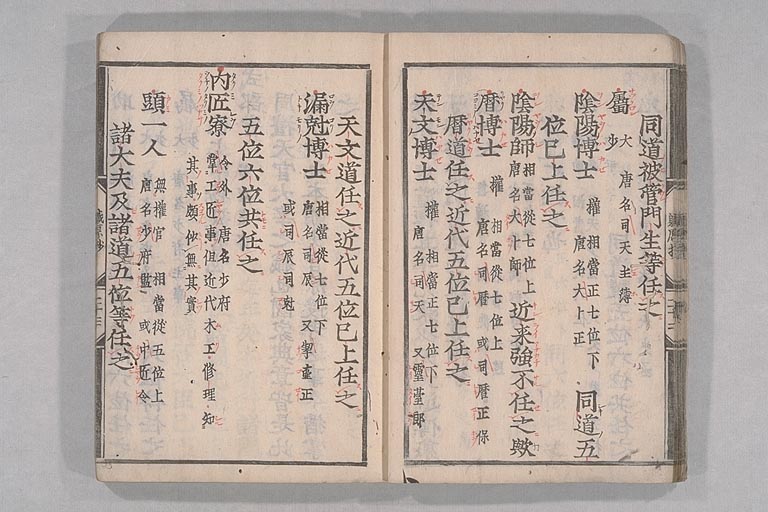 同道被管門生等任之
屬 大 唐名司天主簿
少
陰陽博士 權 相當正七位下 同道五
唐名大卜正
位已上任之
陰陽師 相當從七位上 近来強不任之歟
唐名大卜師
曆博士 權 相當從七位上
唐名司曆 或司曆正保
曆道任之近代五位已上任之
天文博士 權 相當正七位下
唐名司天 又靈臺郎
天文道任之近代五位已上任之
漏尅博士 相當從七位下
唐名司辰 又挈壷正
或司辰司尅
五位六位共任之
内匠寮 令外 唐名少府
掌工匠事但近代木工修理知
其事頗似無其實
頭一人 無權官 相當從五位上
唐名少府監 或中匠令
諸大夫及諸道五位等任之